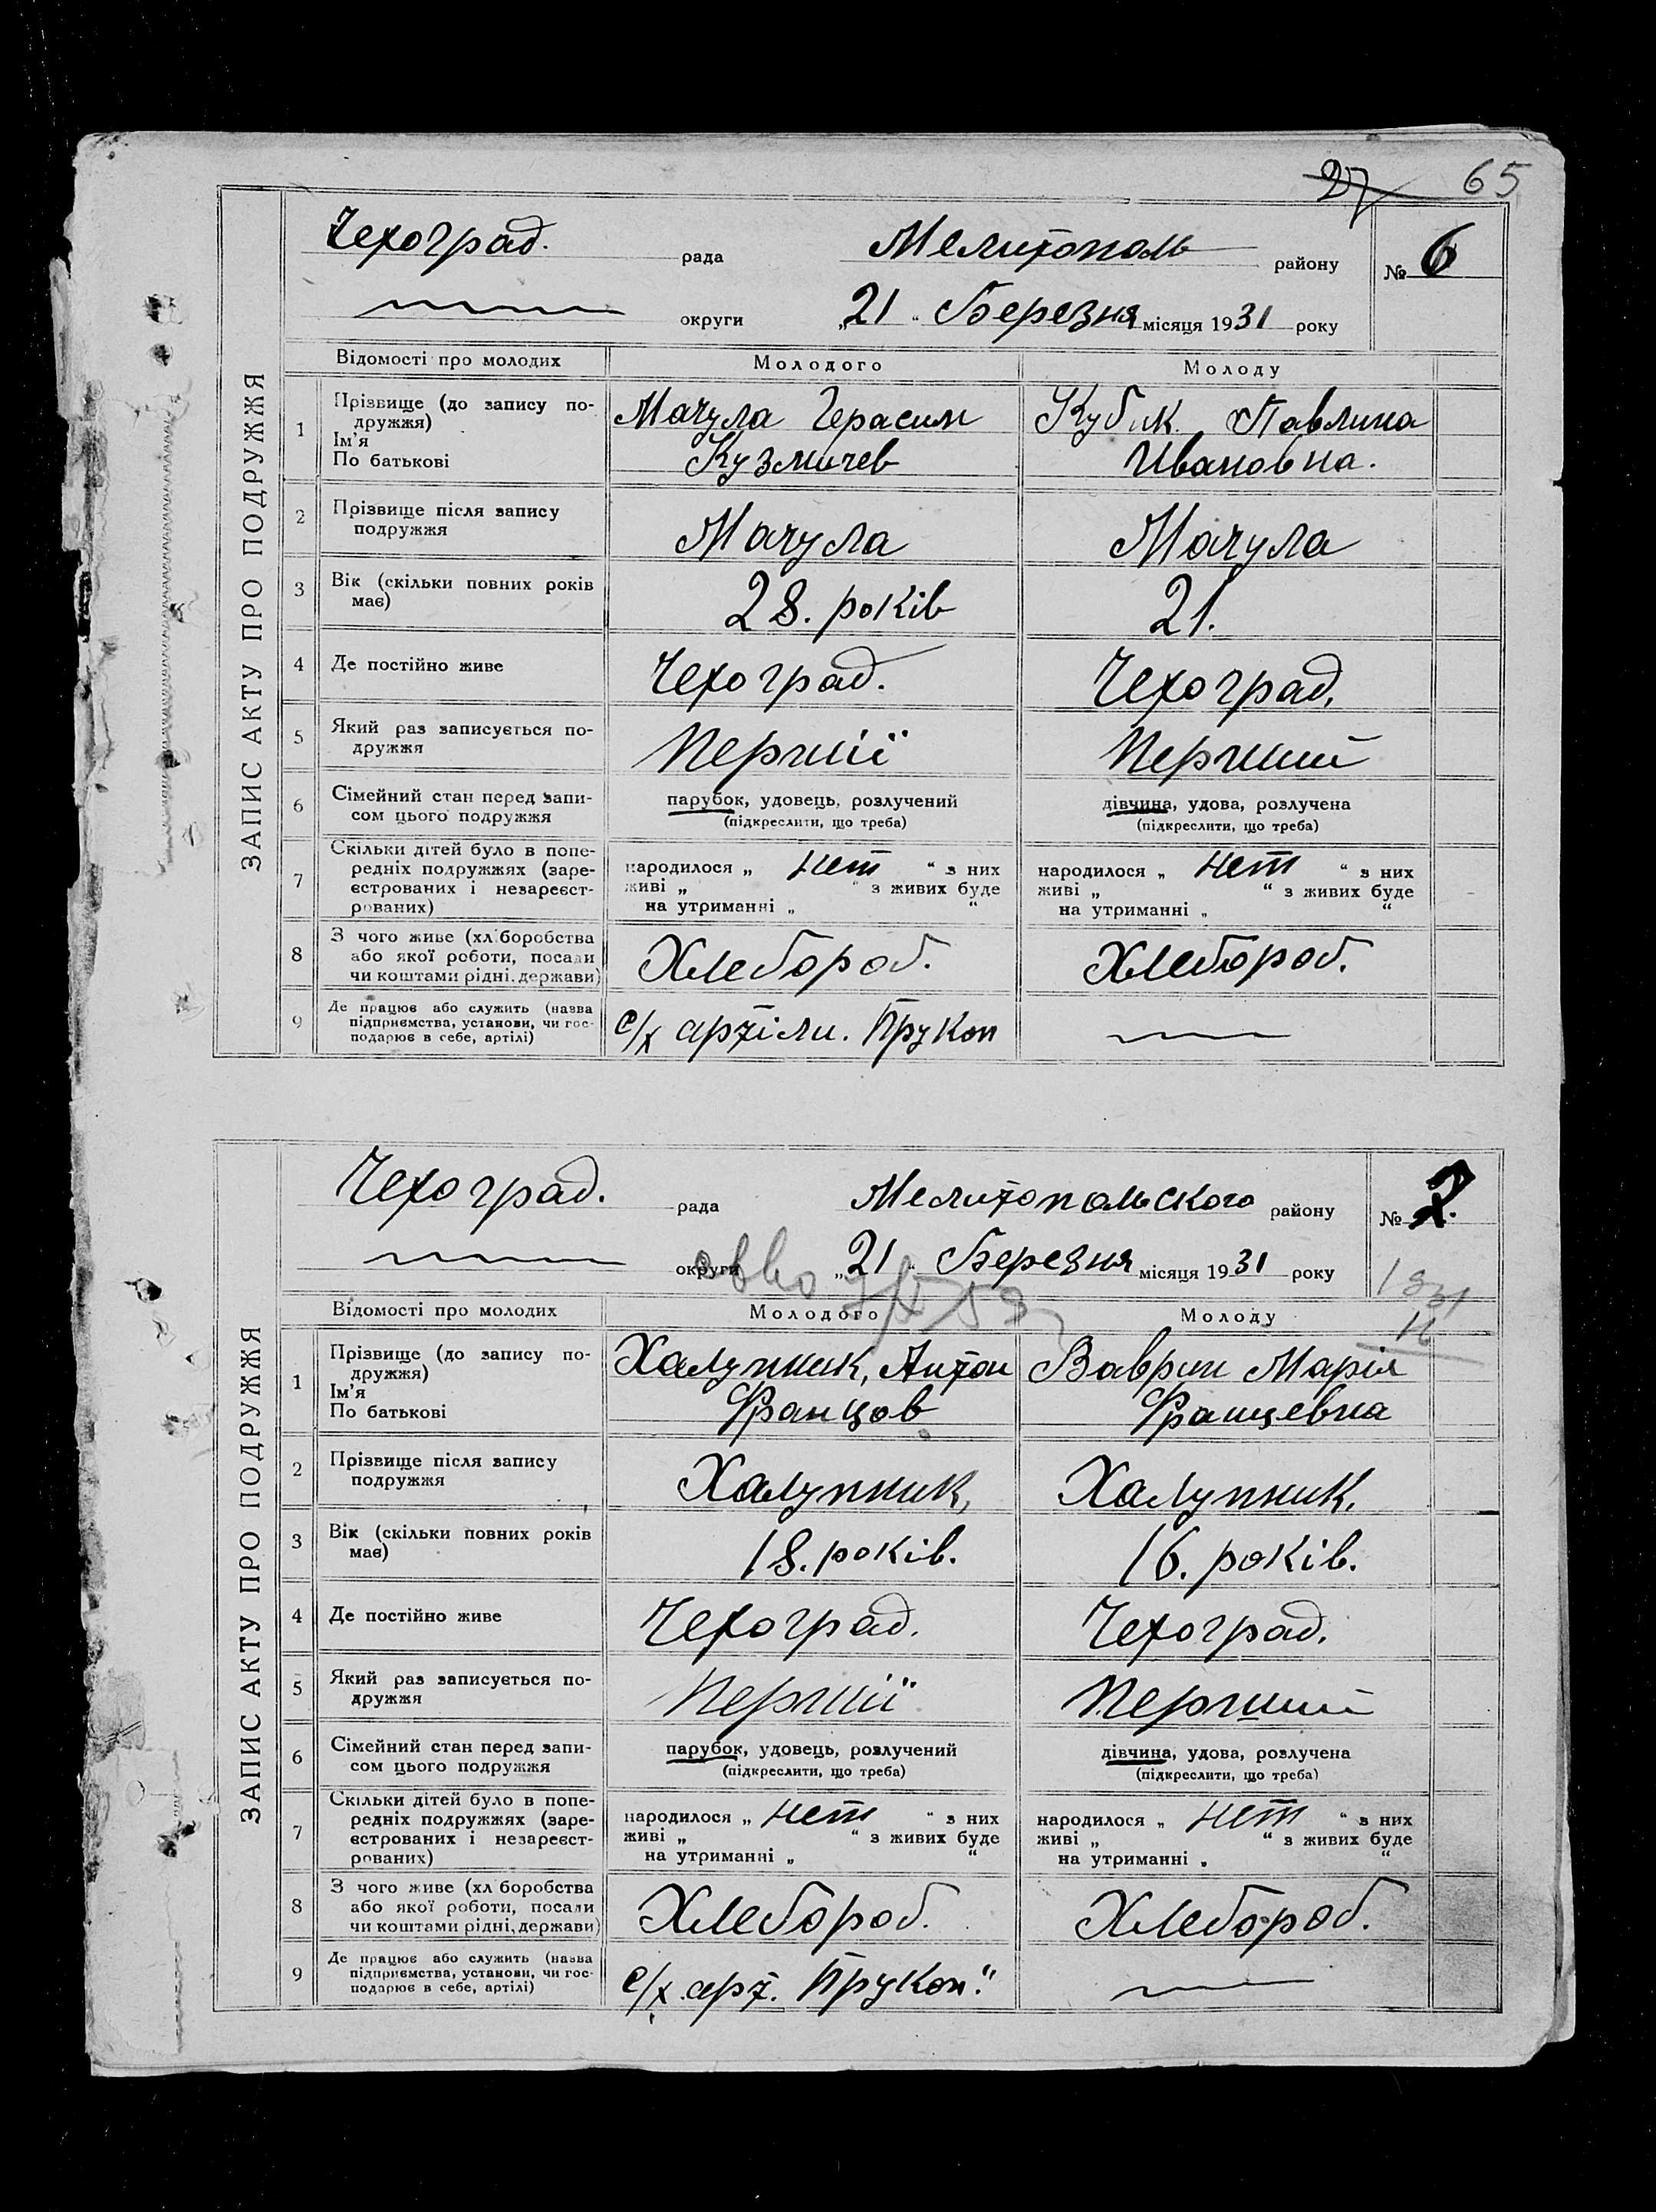 27 65
Чехоград. рада Мелитополь району № 6
округи „21" Березня місяця 1931 року
ЗАПИС АКТУ ПРО ПОДРУЖЖЯ
Відомості про молодих Молодого Молоду
1 Прізвище (до запису по-
дружжя)
Ім'я
По батькові
Мачула Герасим
Кузмичев
Кубик Павлина
Ивановна.
2 Прізвище після запису
подружжя
Мачула Мачула
3 Вік (скільки повних років
має)
28. років 21.
4 Де постійно живе Чехоград. Чехоград.
5 Який раз записується по-
дружжя
Перший Перший
6 Сімейний стан перед запи-
сом цього подружжя
парубок, удовець, розлучений
(підкреслити, що треба)
дівчина, удова, розлучена
(підкреслити, що треба)
7 Скільки дітей було в попе-
редніх подружжях (заре-
єстрованих і незареєст-
рованих)
народилося „ нет " з них
живі „ " з живих буде
на утриманні „ "
народилося „ нет " з них
живі „ " з живих буде
на утриманні „ "
8 З чого живе (хліборобства
або якої роботи, посади
чи коштами рідні, держави)
Хлебороб. Хлебороб.
9 Де працює або служить (назва
підприємства, установи, чи гос-
подарює в себе, артілі)
с/х артіли. Прукоп
Чехоград. рада Мелитопольского району № 7.
округи „21" Березня місяця 1931 року
1931
ЗАПИС АКТУ ПРО ПОДРУЖЖЯ
Відомості про молодих Молодого Молоду
1 Прізвище (до запису по-
дружжя)
Ім'я
По батькові
Халупник, Антон
Францов
Ваврин Марія
Францевна
2 Прізвище після запису
подружжя
Халупник, Халупник.
3 Вік (скільки повних років
має)
18. років. 16. років.
4 Де постійно живе Чехоград. Чехоград.
5 Який раз записується по-
дружжя
Перший Перший
6 Сімейний стан перед запи-
сом цього подружжя
парубок, удовець, розлучений
(підкреслити, що треба)
дівчина, удова, розлучена
(підкреслити, що треба)
7 Скільки дітей було в попе-
редніх подружжях (заре-
єстрованих і незареєст-
рованих)
народилося „ нет " з них
живі „ " з живих буде
на утриманні „ "
народилося „ нет " з них
живі „ " з живих буде
на утриманні „ "
8 З чого живе (хліборобства
або якої роботи, посади
чи коштами рідні, держави)
Хлебороб. Хлебороб.
9 Де працює або служить (назва
підприємства, установи, чи гос-
подарює в себе, артілі)
с/х арт. Прукоп."